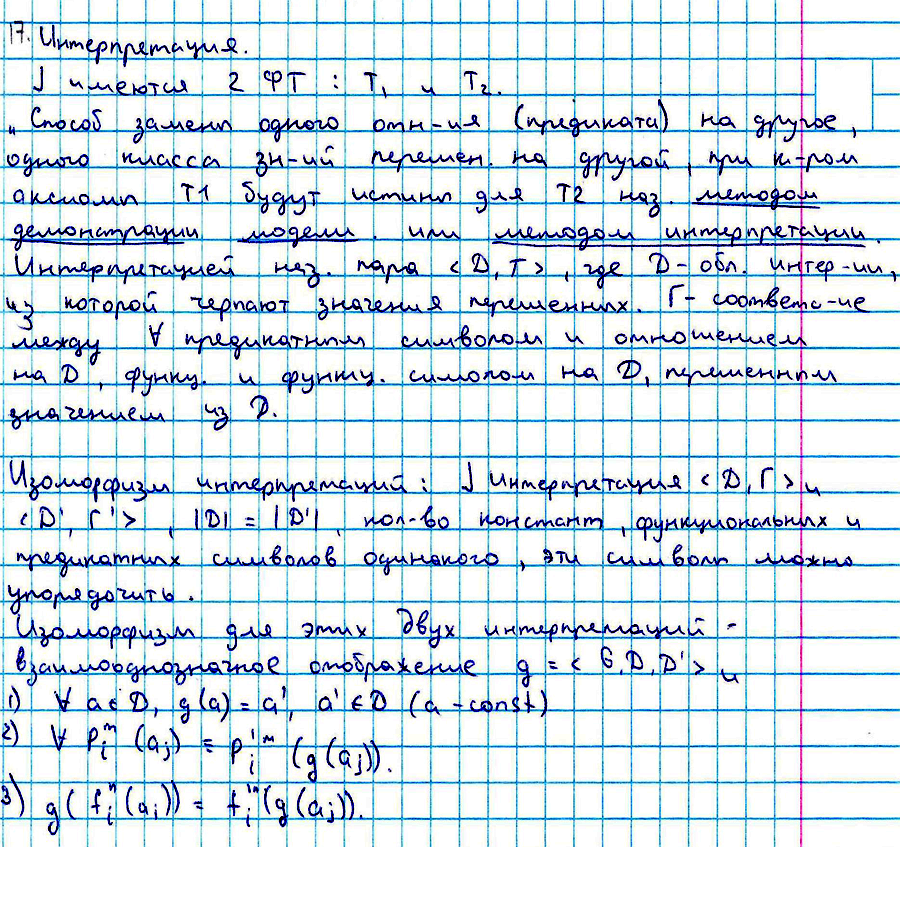 17. Интерпретация.
] имеются 2 ФТ : T₁ и T₂.
"Способ замены одного отн-ия (предиката) на другое,
одного класса зн-ий перемен. на другой, при к-ром
аксиомы T1 будут истины для T2 наз. методом
демонстрации модели. или методом интерпретации.
Интерпретацией наз. пара <D, Г>, где D - обл. интер-ии,
из которой черпают значения переменных. Г- соответс-ие
между ∀ предикатным символом и отношением
на D, функц. и функц. симолом на D, переменным
значением из D.
Изоморфизм интерпретаций: ] Интерпретация <D, Г> и
<D', Г'>, |D| = |D'|, кол-во констант, функциональных и
предикатних символов одинакого, эти символы можно
упорядочить.
Изоморфизм для этих двух интерпретаций -
взаимооднозначное отображение g = <G, D, D'> и
1) ∀ a ∈ D, g(a) = a', a' ∈ D (a - const)
2) ∀ Pᵢᵐ (aⱼ) ≡ P'ᵢᵐ (g(aⱼ)).
3) g(fᵢⁿ(aⱼ)) = f'ᵢⁿ(g(aⱼ)).